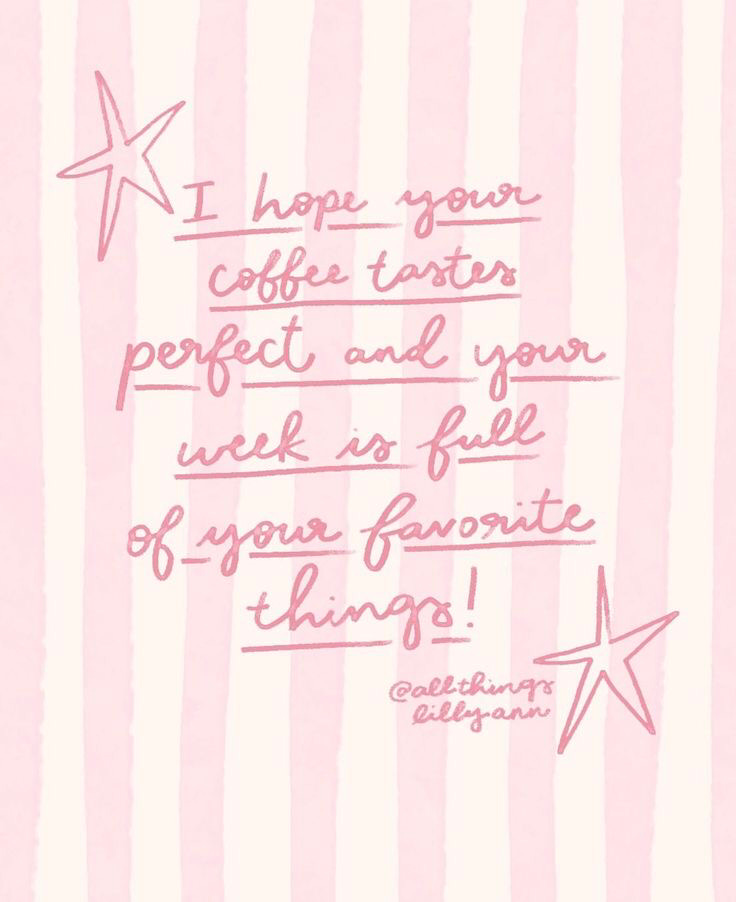 I hope your
coffee tastes
perfect and your
week is full
of your favorite
things!
@allthings
lillyann